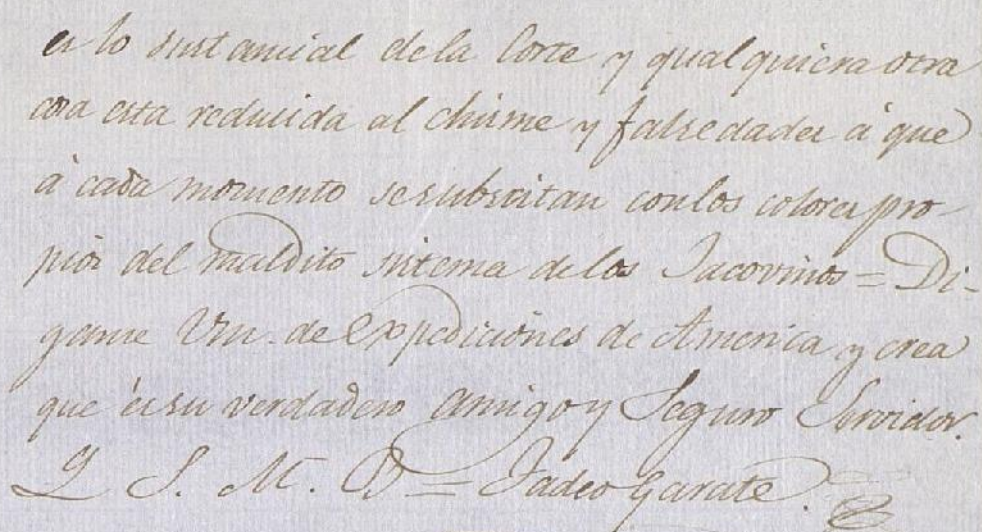 es lo sustancial dela Corte y qualquiera otra
cosa esta reducida al chisme y falsedades á que
á cada momento sesubsitan conlos colores pro-
pios del maldito sistema delos Jacovinos = Di-
game Vm. de expediciones de America y crea
que es su verdadero amigo y Seguro Servidor.
Q S. M. B = Tadeo Garate.